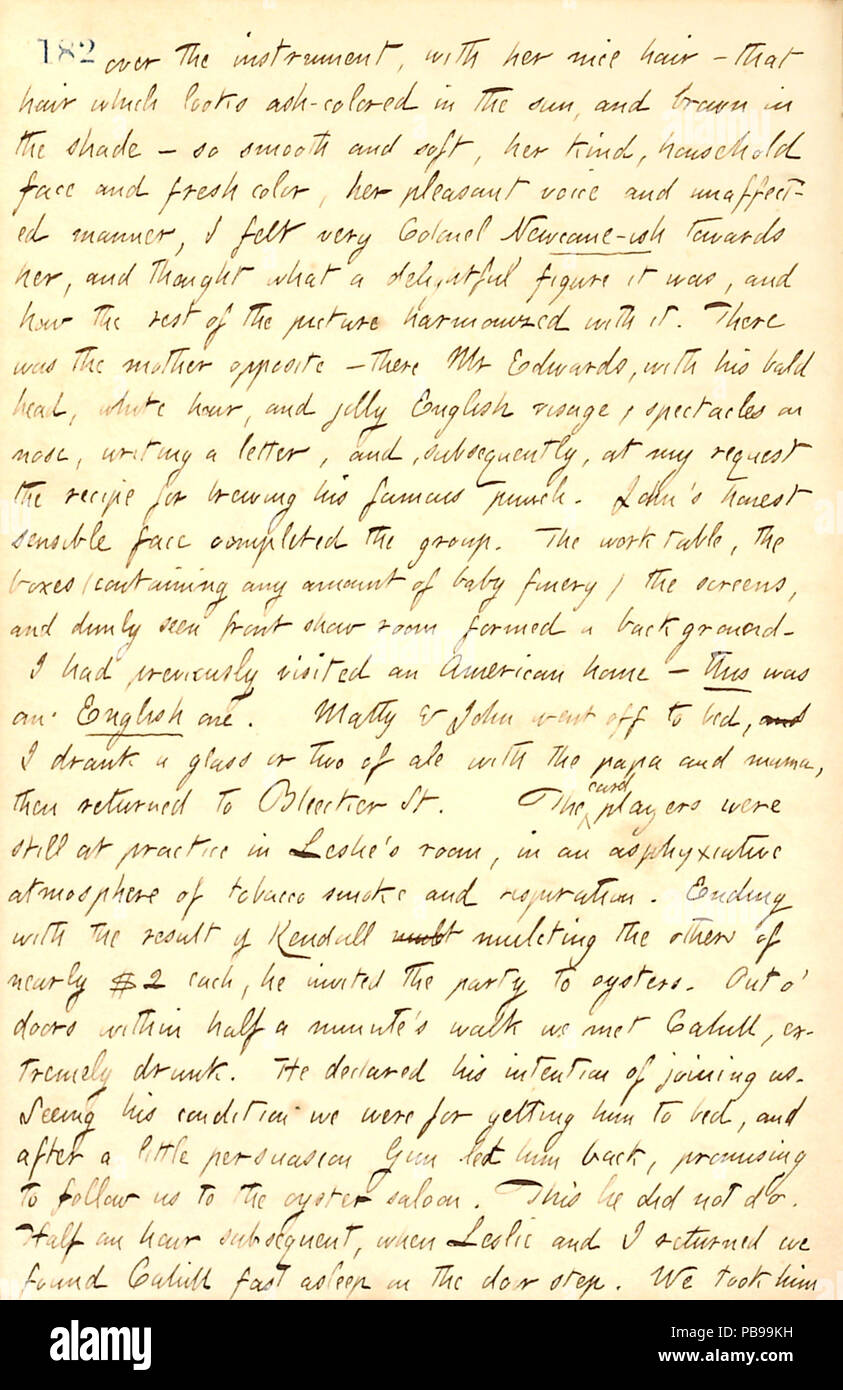 182 over the instrument, with her nice hair – that
hair which looks ash-colored in the sun, and brown in
the shade – so smooth and soft, her kind, household
face and fresh color, her pleasant voice and unaffect-
ed manner, I felt very Colonel Newcome-ish towards
her, and thought what a delightful figure it was, and
how the rest of the picture harmonized with it. There
was the mother opposite – there Mr Edwards, with his bald
head, white hair, and jolly English visage, spectacles on
nose, writing a letter, and, subsequently, at my request
the recipe for brewing his famous punch. John's honest
sensible face completed the group. The work table, the
boxes (containing any amount of baby finery) the screens,
and dimly seen front show room formed a background.
I had previously visited an American home – this was
an English one. Matty & John went off to bed, and
I drank a glass or two of ale with the papa and mama,
then returned to Bleecker St. The card players were
still at practice in Leslie's room, in an asphyxiative
atmosphere of tobacco smoke and respiration. Ending
with the result of Kendall mult mulcting the others of
nearly $2 each, he invited the party to oysters. Out o'
doors within half a minute's walk we met Cahill, ex-
tremely drunk. He declared his intention of joining us.
Seeing his condition we were for getting him to bed, and
after a little persuasion Gun led him back, promising
to follow us to the oyster saloon. This he did not do.
Half an hour subsequent, when Leslie and I returned we
found Cahill fast asleep on the door step. We took him
alamy
Image ID: PB99KH
www.alamy.com